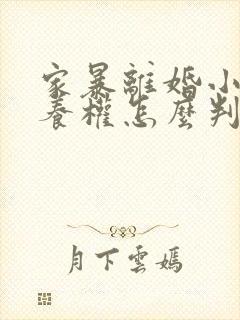 家暴離婚小
養權怎麼判
月下雲嫣